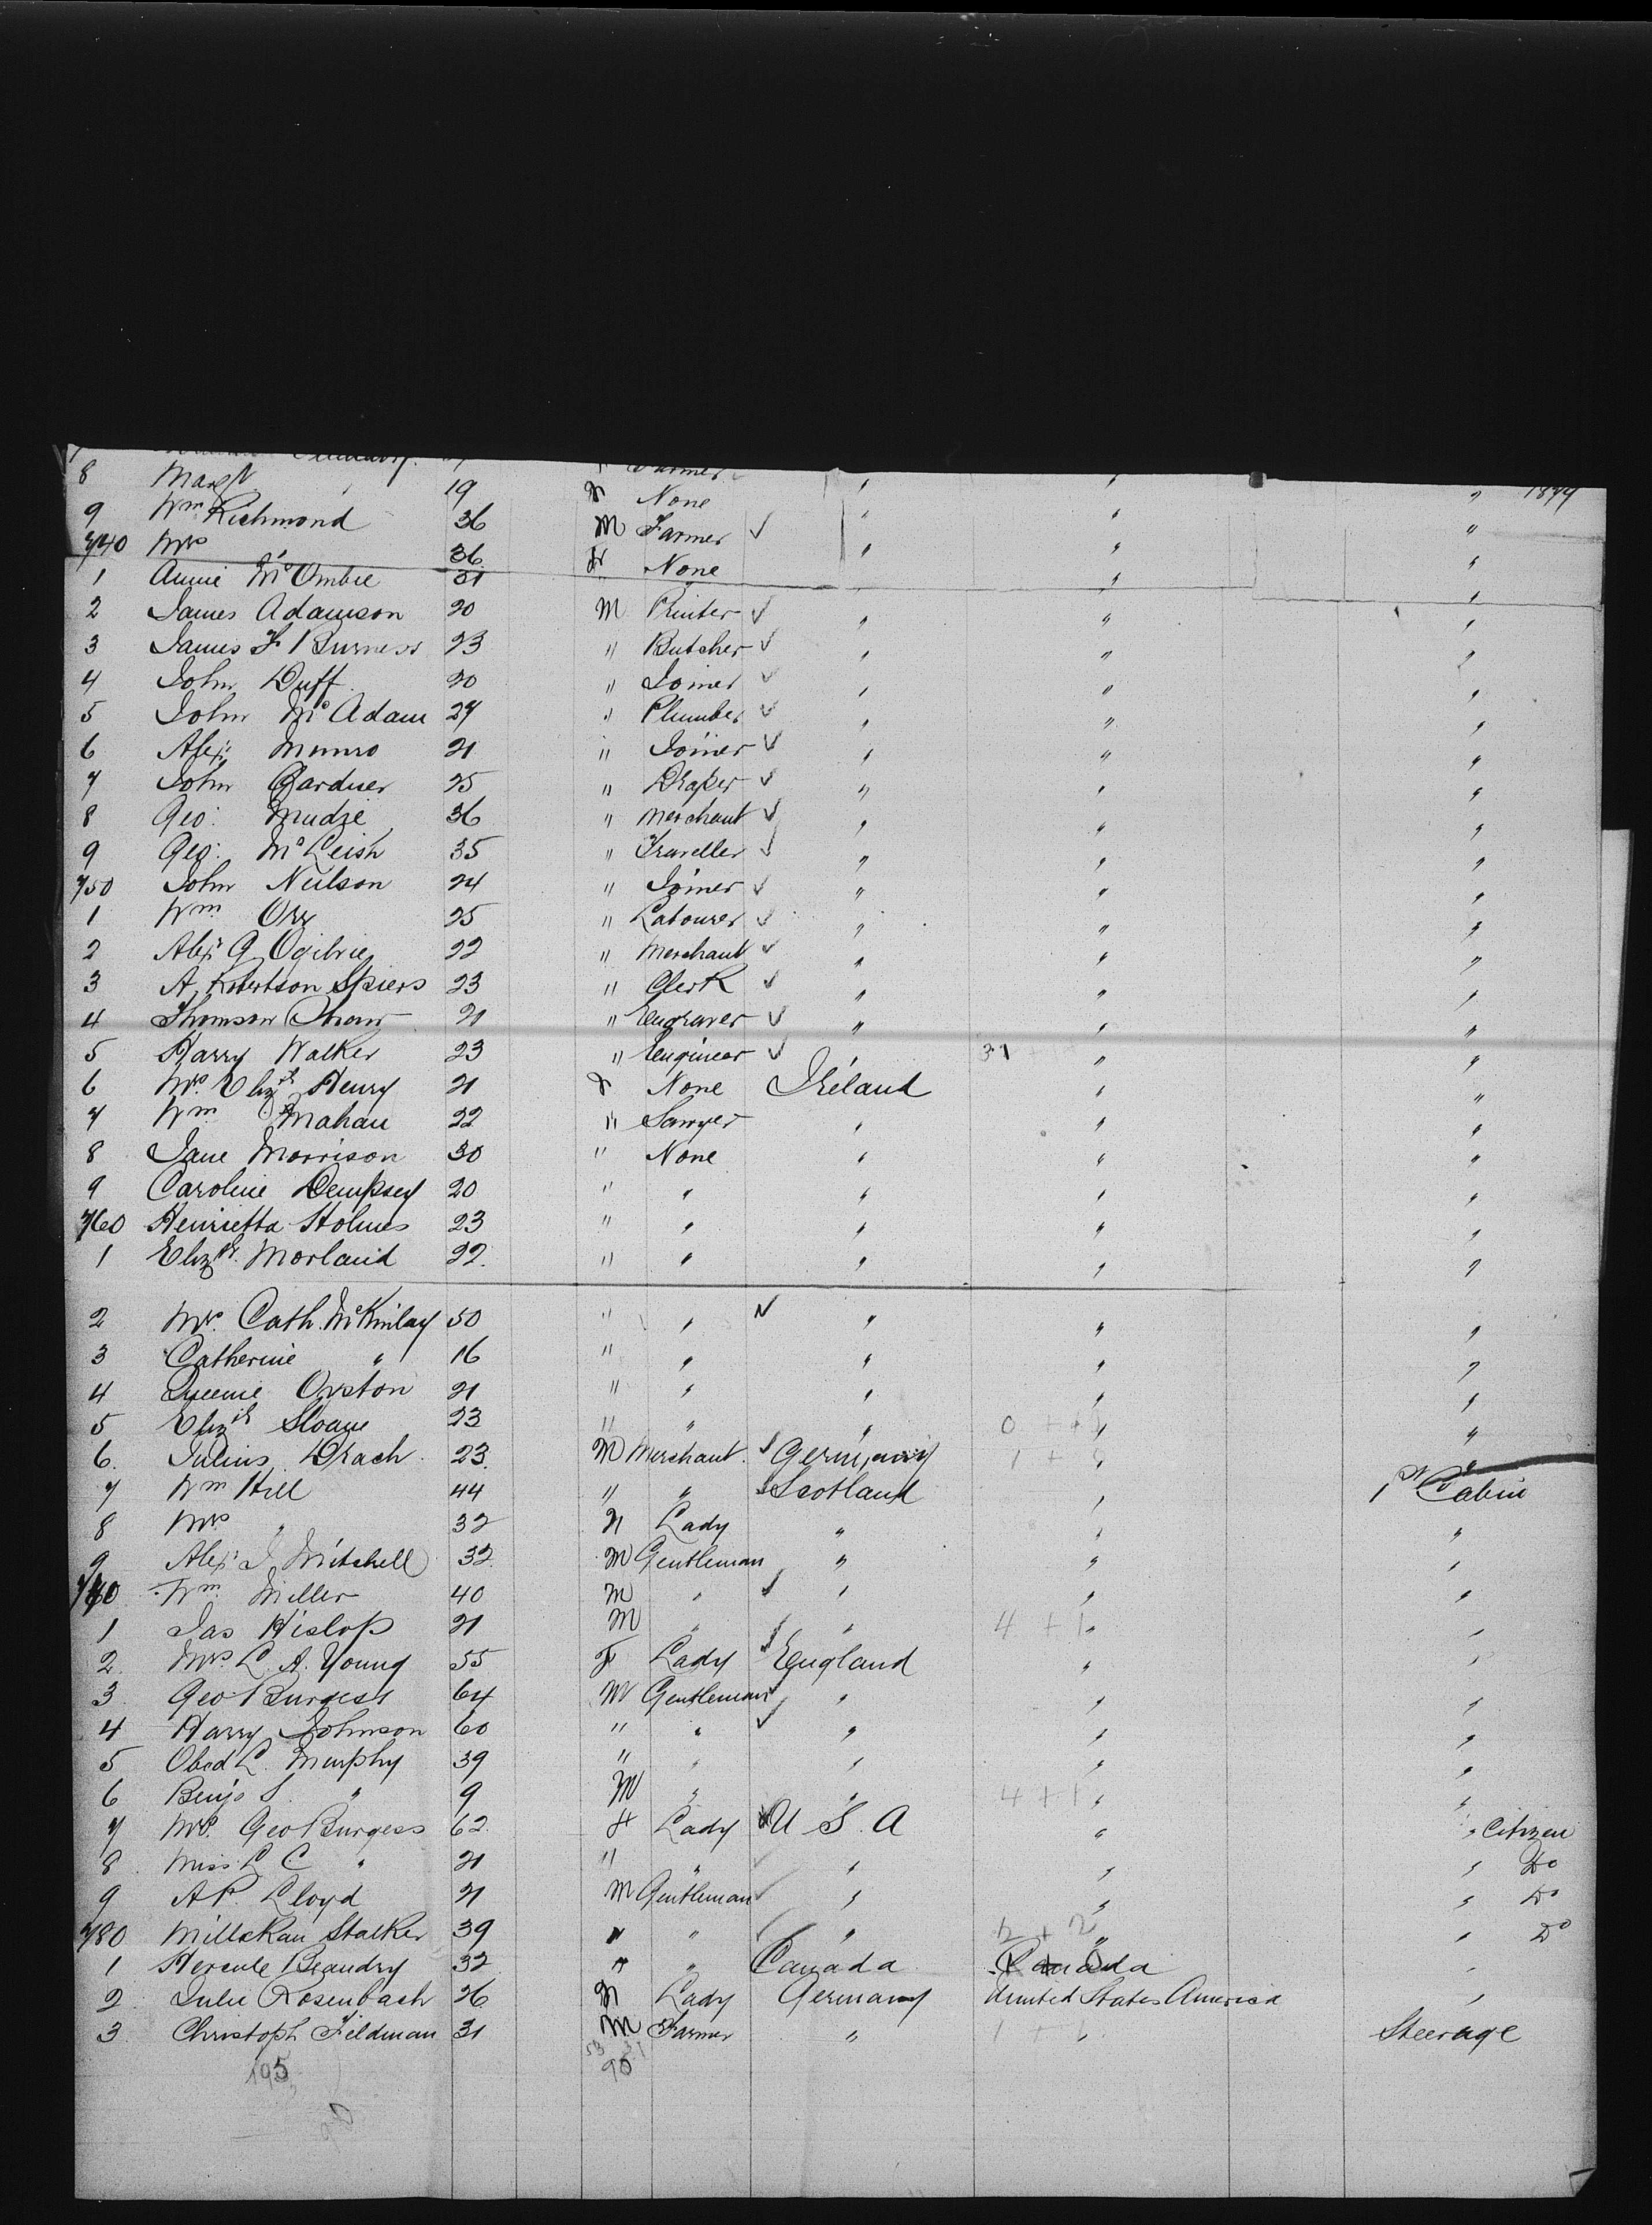 8 Margt " 19 F None " " " 1879
9 Wm Richmond 36 M Farmer " " "
740 Mrs 36 F None " " "
1 Annie McOmbie 31 " "
2 James Adamson 20 M Printer " " "
3 James F Burness 23 " Butcher " " "
4 John Duff 20 " Joiner " " "
5 John McAdam 27 " Plumber " " "
6 Alexr Munro 21 " Joiner " " "
7 John Gardner 25 " Draper " " "
8 Geo: Mudie 36 " Merchant " " "
9 Geo: McLeish 35 " Traveller " " "
750 John Neilson 24 " Joiner " " "
1 Wm Orr 25 " Labourer " " "
2 Alexr G Ogilvie 22 " Merchant " " "
3 A, Robertson Spiers 23 " Clerk " " "
4 Thomson Shaw 21 " Engraver " " "
5 Harry Walker 23 " Engineer " 31 " "
6 Mrs Elizth Henry 21 F None Ireland " "
7 Wm Mahau 22 " Sawyer " " "
8 Jane Morrison 30 " None " " "
9 Caroline Dempsey 20 " " " " "
760 Henrietta Holmes 23 " " " " "
1 Elizth Morland 22. " " " " "
2 Mrs. Cath. McKinlay 50 " " " " "
3 Catherine " 16 " " " " "
4 Queenie Orston 21 " " " " "
5 Elizth Sloane 23 " " " 0 + " "
6. Julius Drach 23. M Merchant. Germany 1 + " "
7 Wm Hill 44 " " Scotland " 1st Cabin
8 Mrs " 32 F Lady " " "
9 Alexr J. Mitchell 32. M Gentleman " " "
770 Wm Miller 40 M " " " "
1 Jas Hislop 21 M " " 4 + 1 " "
2. Mrs L. A. Young 55 F Lady England " "
3 Geo Burgess 64 M Gentleman " " "
4 Harry Johnson 60 " " " " "
5 Obed L. Murphy 39 " " " " "
6 Benjo S. " 9 M " " 4 + 1 " "
7 Mrs. Geo Burgess 62 F Lady U S A " " Citizen
8 Miss L C " 21 " " " " " Do
9 A P. Lloyd 21 M Gentleman " " " Do
780 Millskau Stalker 39 " " " 2 + 2 " " Do
1 Hercule Beaudry 32 " " Canada Canada "
2 Julie Rosenbach 26 F Lady Germany United States America "
3 Christoph Fieldman 31 M Farmer " 1 + " Steerage
195
53 31
90
90